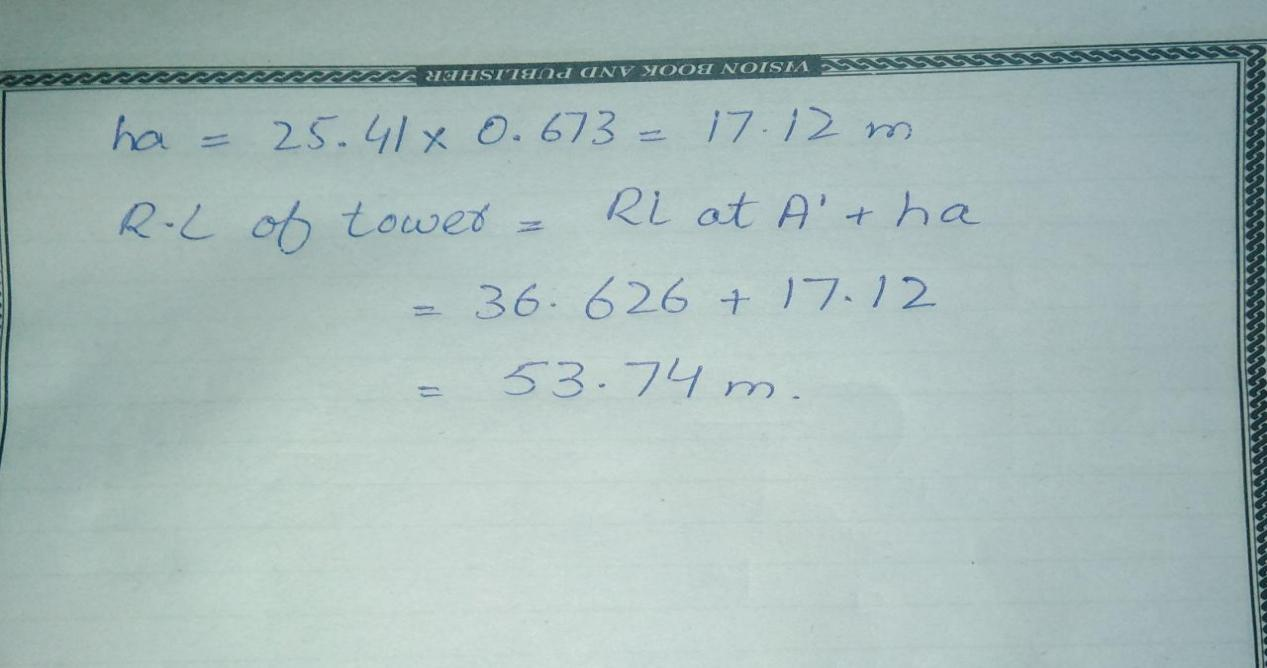 VISION BOOK AND PUBLISHER
ha = 25.41 x 0.673 = 17.12 m
R.L of tower = RL at A' + ha
= 36.626 + 17.12
= 53.74 m.